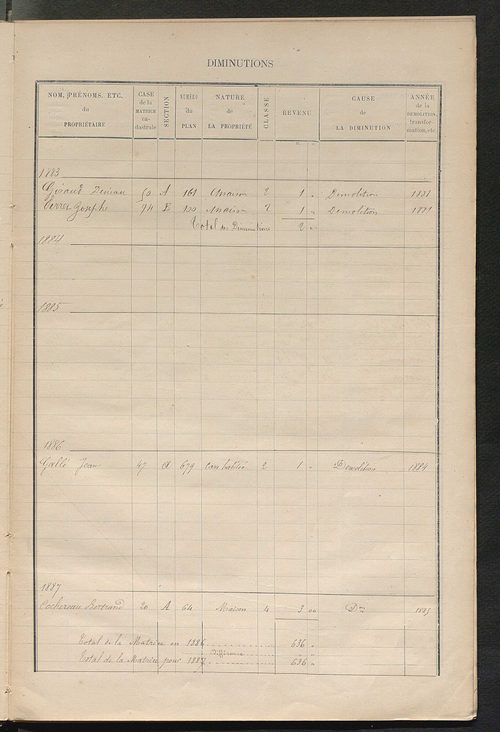 DIMINUTIONS
NOM, PRÉNOMS, ETC. du PROPRIÉTAIRE
CASE de la MATRICE ca- dastrale
SECTION
NUMÉRO du PLAN
NATURE de LA PROPRIÉTÉ
CLASSE
REVENU
CAUSE de LA DIMINUTION
ANNÉE de la DÉMOLITION, transfor- mation, etc
1883
Giraud 50 A 161 Maison 2 1 " Démolition 1881
Joseph 94 E 100 Maison 2 1 " Démolition 1881
Total des Diminutions 2 "
1884
1885
1886
Gallé Jean 47 A 679 2 1 " Démolition 1884
1887
Cochereau Bertrand 20 A 64 Maison 4 3 00 Don 1885
Total de la Matrice en 1886 636 "
Différence
Total de la Matrice pour 1887 636 "